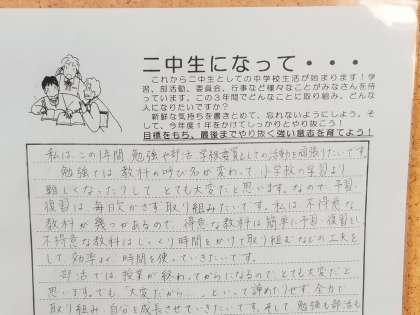 二中生になって・・・
これから二中生としての中学校生活が始まります！学
習、部活動、委員会、行事など様々なことがみなさんを待
っています。この3年間でどんなことに取り組み、どんな
人になりたいですか？
新鮮な気持ちを書きとめて、忘れないようにしよう。そ
して、今年度1年をかけてしっかりとやり抜こう！
目標をもち、最後までやり抜く強い意志を育てよう！
私は、この1年間 勉強や部活、学級委員としての活動を頑張りたいです。
勉強では 教科の呼び名が変わって、小学校の学習より
難しくなったりして とても大変だと思います。なので、予習・
復習は 毎日欠かさず 取り組みたいです。私は 不得意な
教科が幾つかあるので、得意な教科は簡単に予習・復習し、
不得意な教科はじっくり時間をかけて取り組むなどの工夫を
して 効率よく 時間を使っていきたいです。
部活では 授業が終わってからになるので、とても大変だと
思います。でも「大変だから…」といって諦めたりせず 全力で
取り組み、自分を成長させていきたいです。そして 勉強も部活も